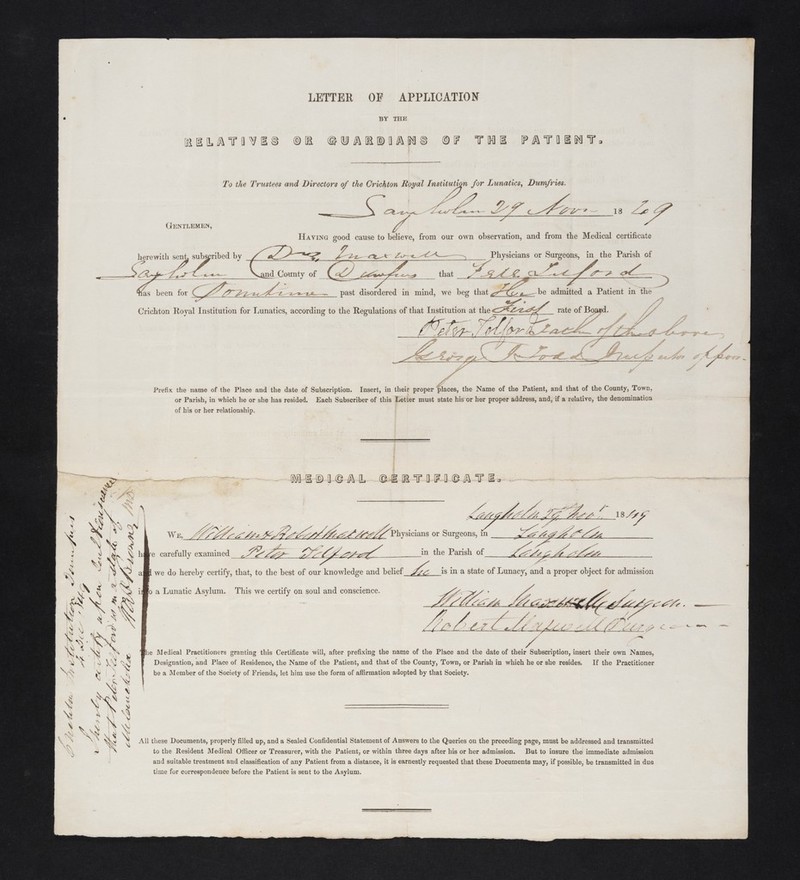 LETTER OF APPLICATION
BY THE
RELATIVES OR GUARDIANS OF THE PATIENT.
To the Trustees and Directors of the Crichton Royal Institution for Lunatics, Dumfries.
Langholm 29 Novr 18 49
GENTLEMEN,
HAVING good cause to believe, from our own observation, and from the Medical certificate
herewith sent, subscribed by Drs Maxwell Physicians or Surgeons, in the Parish of
Langholm and County of Dumfries that Peter Telford
has been for Sometime past disordered in mind, we beg that He be admitted a Patient in the
Crichton Royal Institution for Lunatics, according to the Regulations of that Institution at the First rate of Board.
Peter Telford of the above
George Inspector of poor
Prefix the name of the Place and the date of Subscription. Insert, in their proper places, the Name of the Patient, and that of the County, Town,
or Parish, in which he or she has resided. Each Subscriber of this Letter must state his or her proper address, and, if a relative, the denomination
of his or her relationship.
MEDICAL CERTIFICATE.
Langholm 29 Novr 1849
WE, William & Robert Maxwell Physicians or Surgeons, in Langholm
have carefully examined Peter Telford in the Parish of Langholm
and we do hereby certify, that, to the best of our knowledge and belief he is in a state of Lunacy, and a proper object for admission
into a Lunatic Asylum. This we certify on soul and conscience.
William Maxwell Surgeon.
Robert Maxwell Surgeon
The Medical Practitioners granting this Certificate will, after prefixing the name of the Place and the date of their Subscription, insert their own Names,
Designation, and Place of Residence, the Name of the Patient, and that of the County, Town, or Parish in which he or she resides. If the Practitioner
be a Member of the Society of Friends, let him use the form of affirmation adopted by that Society.
All these Documents, properly filled up, and a Sealed Confidential Statement of Answers to the Queries on the preceding page, must be addressed and transmitted
to the Resident Medical Officer or Treasurer, with the Patient, or within three days after his or her admission. But to insure the immediate admission
and suitable treatment and classification of any Patient from a distance, it is earnestly requested that these Documents may, if possible, be transmitted in due
time for correspondence before the Patient is sent to the Asylum.
Crichton Institution Dumfries
I hereby certify upon soul & conscience
that Peter Telford is in a state of
Melancholia